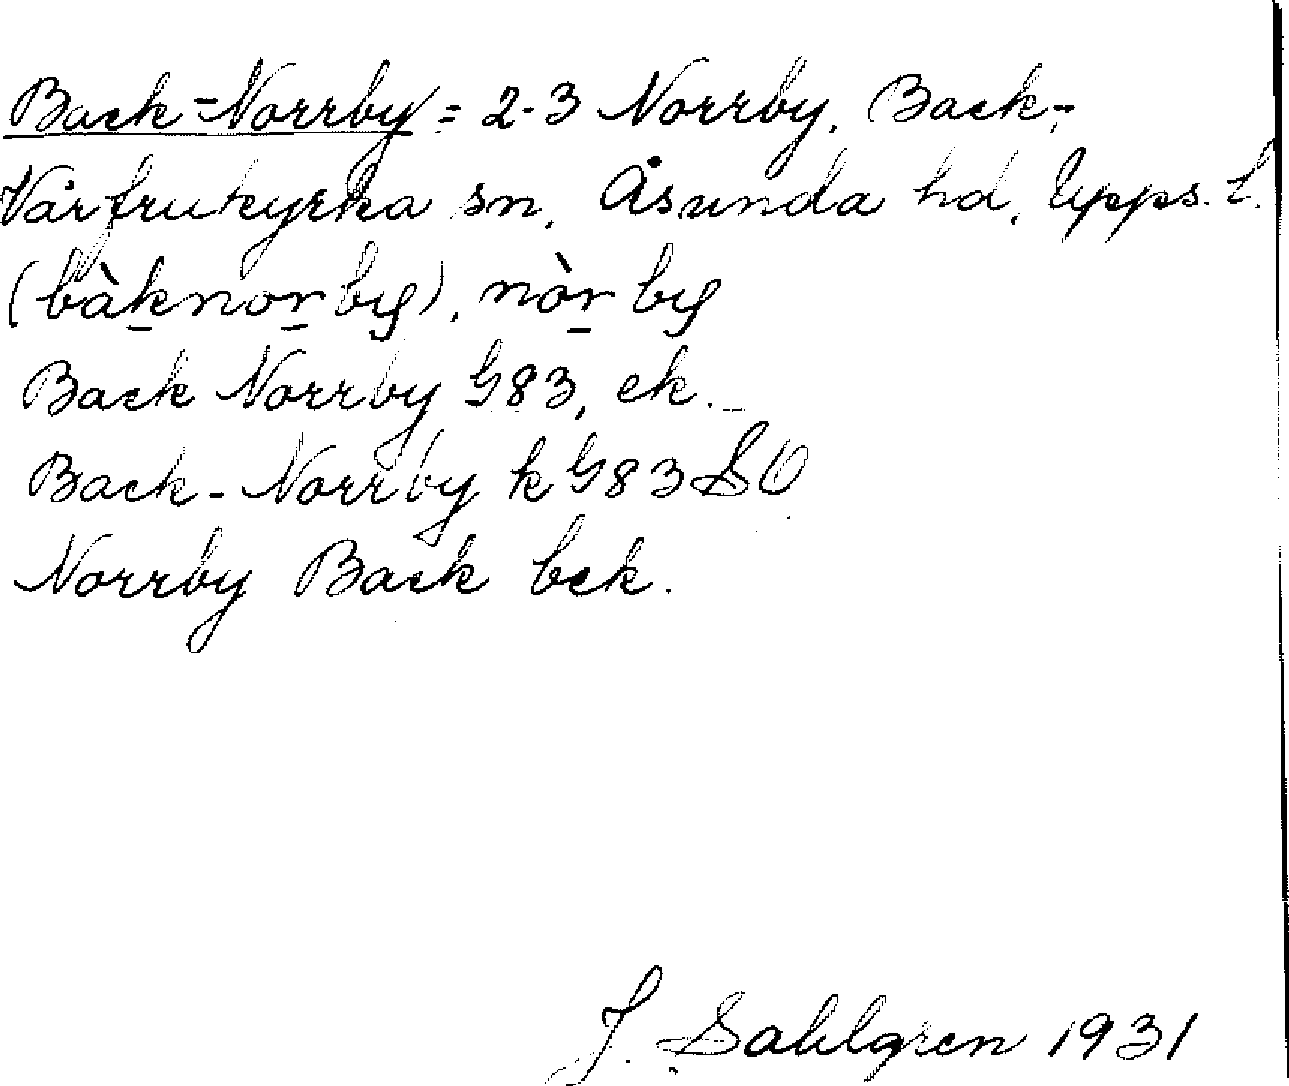 Back-Norrby = 2-3 Norrby, Back-,
Vårfrukyrka sn, Åsunda hd, Upps. l.
(bàknorby), nòrby
Back Norrby G83, ek.
Back-Norrby k G83 SO
Norrby Back bek.
J. Sahlgren 1931